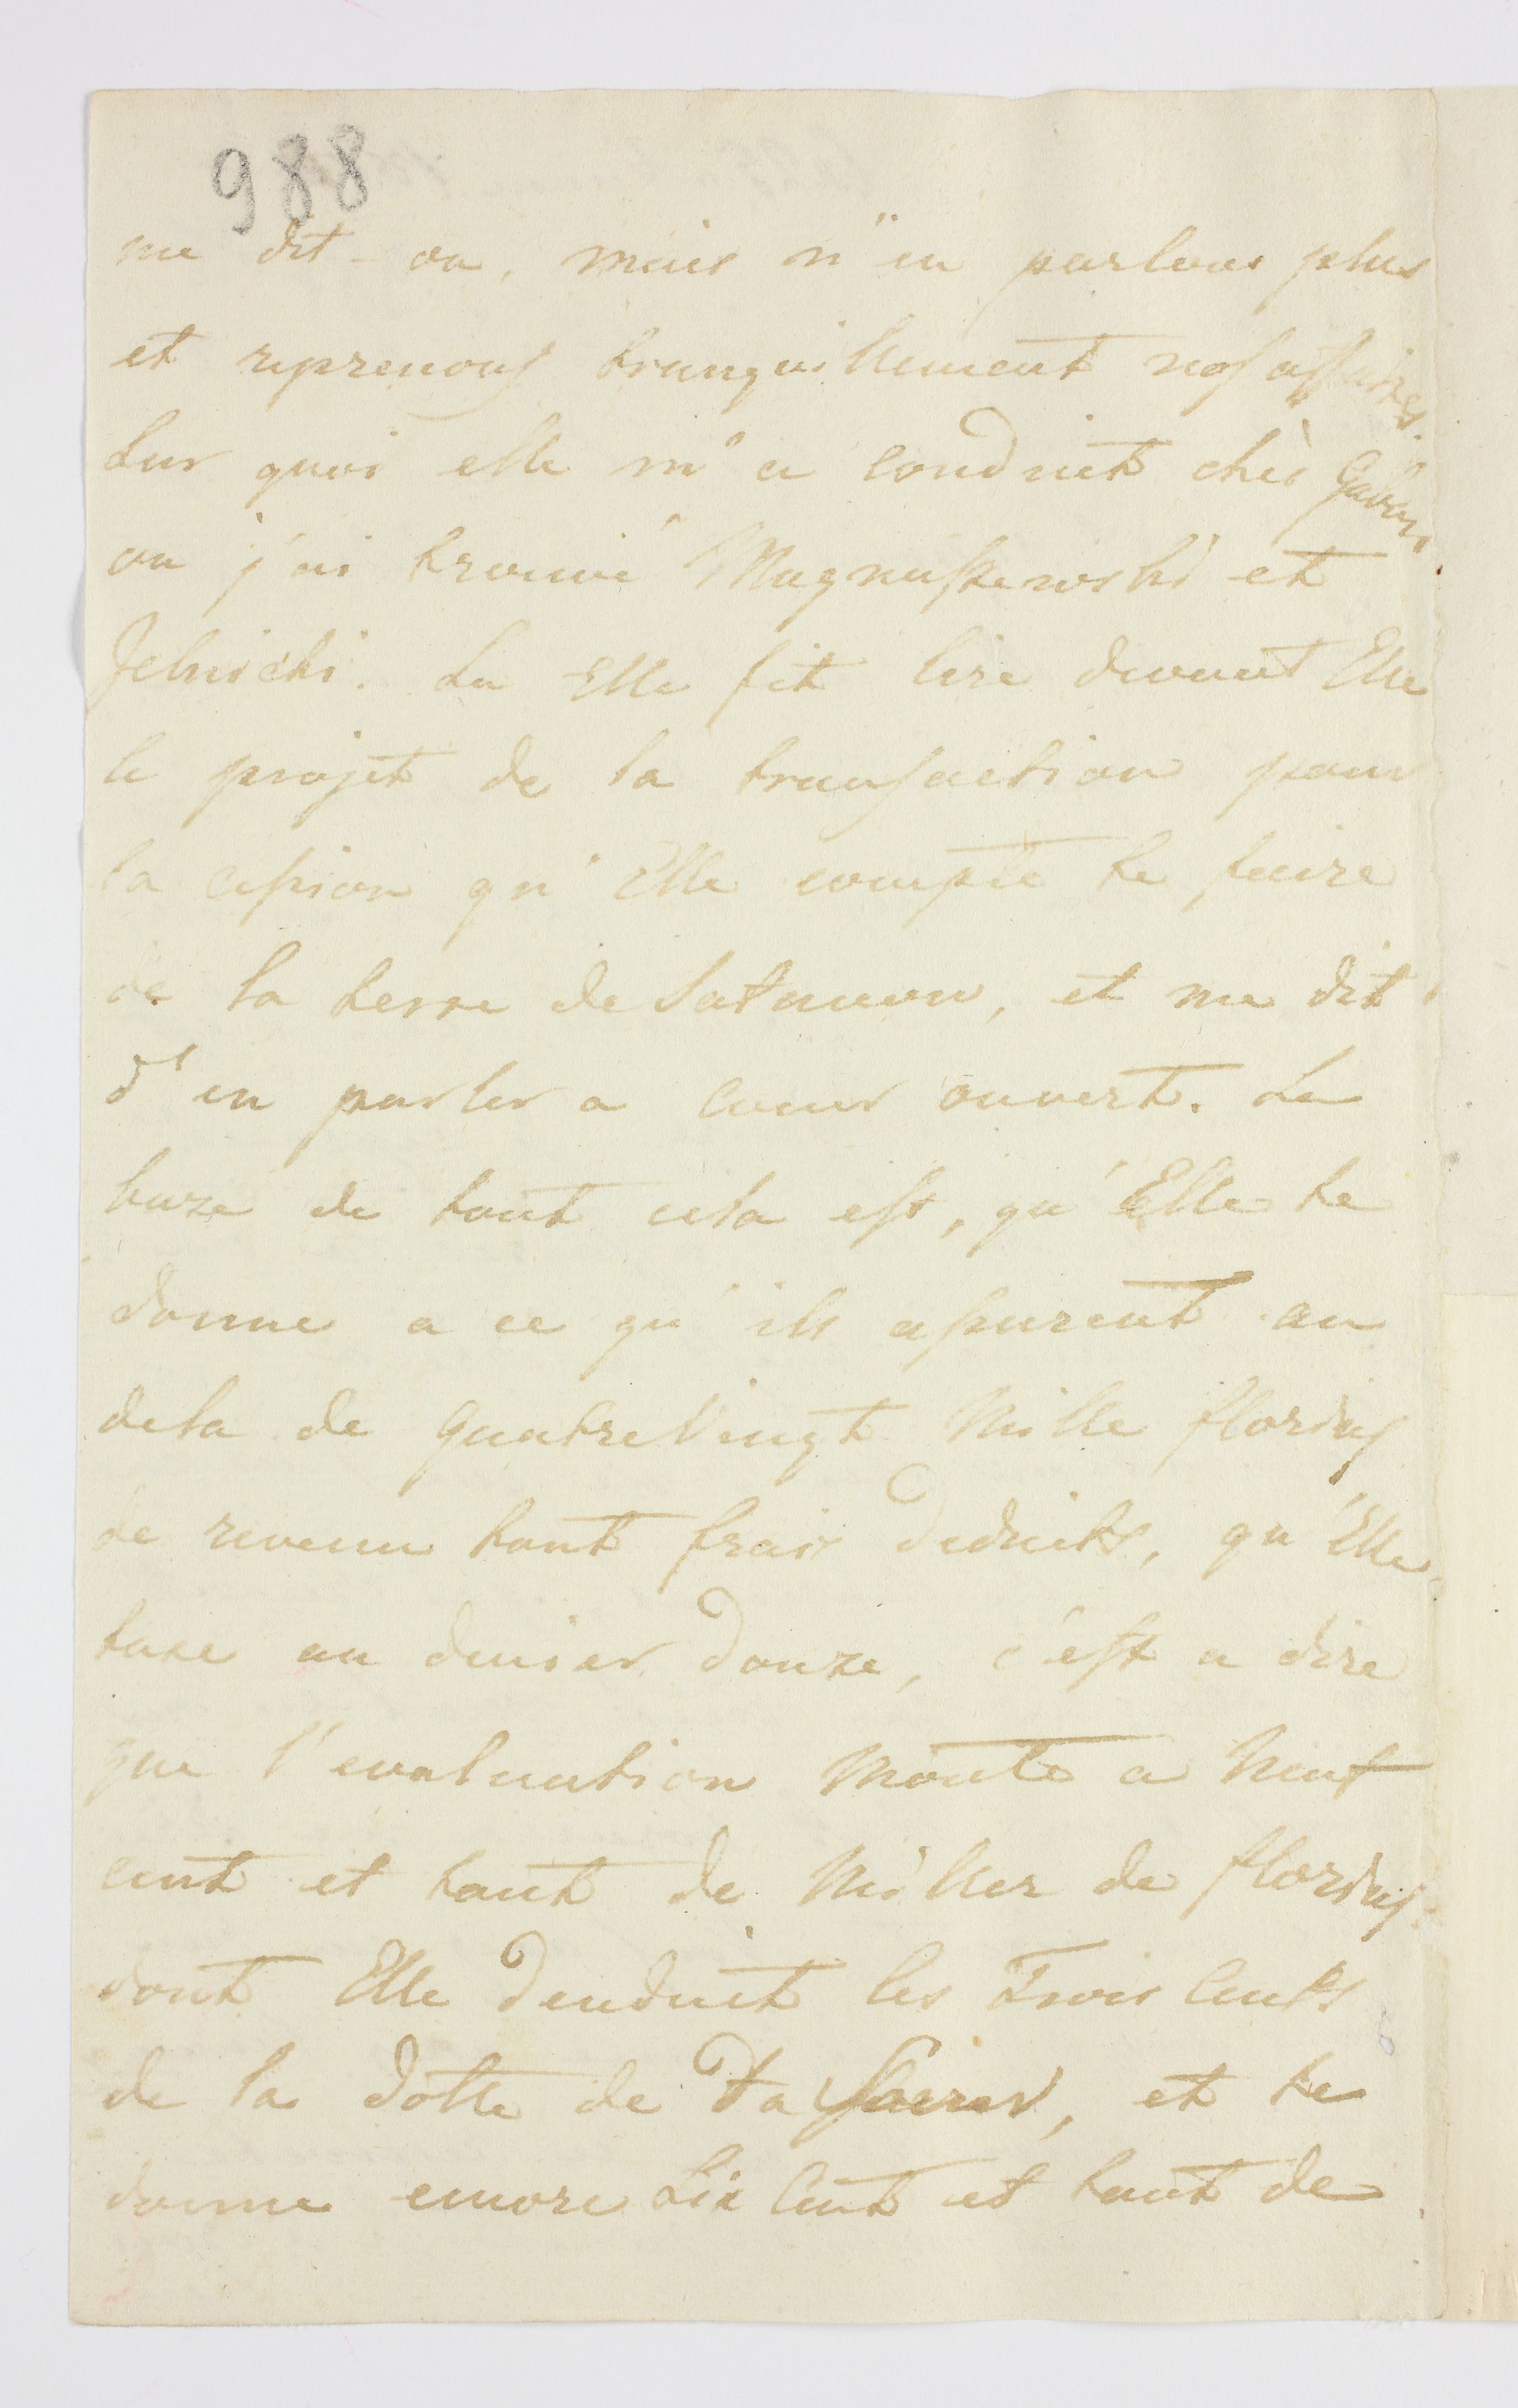 988
me dit-on, mais n'en parlons plus
et reprenons tranquillement nos affaires.
Sur quoi elle m'a conduit chès
ou j'ai trouvé Magnuszewski et
Jelnicki. La Elle fit lire devant Elle
le projet de la transaction pour
la cession qu'Elle compte te faire
de la terre de Satanow, et me dit
d'en parler a coeur ouvert. La
baze de tout cela est, qu'Elle te
donne a ce qu'ils assurent au
dela de quatre Vingt Mille florins
de revenu tout frais deduits, qu'Elle
taxe au denier douze, c'est a dire
que l'evaluation Monte a Neuf
cent et tant de Milles de florins.
dont Elle denduit les Trois Cents
de la dotte de Ta Soeur, et te
donne encore Six Cent et tant de